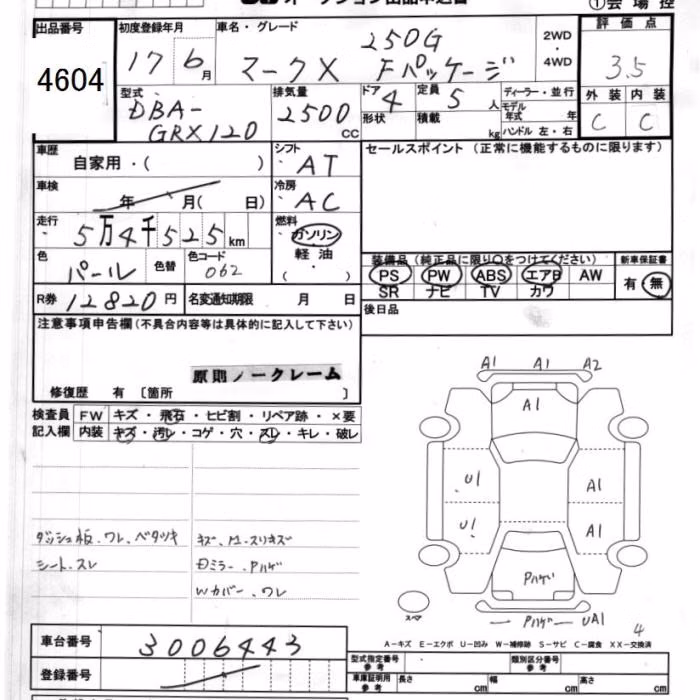 オークション出品申込書
①会場控
出品番号 初度登録年月 車名・グレード 評価点
4604 17 6月 250G 2WD・4WD 3.5
マークX Fパッケージ
型式 排気量 ドア 4 定員 5 人 ディーラー・並行 外装 内装
DBA- 2500 cc 形状 積載 kg モデル年式 年 C C
GRX120 ハンドル 左・右
車歴 自家用・( ) シフト AT セールスポイント (正常に機能するものに限ります)
車検 年 月( 日) 冷房 AC
走行 5万4千525km 燃料 ガソリン
軽油
( )
色 パール 色替 色コード 062
装備品 (純正品に限り○をつけてください) 新車保証書
PS PW ABS エアB AW 有・無
SR ナビ TV カワ
R券 12820円 名変通知期限 月 日 後日品
注意事項申告欄(不具合内容等は具体的に記入して下さい)
原則ノークレーム
修復歴 有 〔箇所 〕
検査員 FW キズ・飛石・ヒビ割・リペア跡・×要
記入欄 内装 キズ・汚レ・コゲ・穴・スレ・キレ・破レ
ダッシュ板、ワレ、ベタツキ
シート、スレ
キズ、M.スリキズ
Dミラー、Pハゲ
Wカバー、ワレ
A1 A1 A2
A1
U1 A1
U1 A1
Pハゲ
スペア
Pハゲ UA1
4
A-キズ E-エクボ U-凹み W-補修跡 S-サビ C-腐食 XX-交換済
車台番号 3006443
登録番号
型式指定番号 参考 類別区分番号 参考
車庫証明用 参考 長さ cm 幅 cm 高さ cm